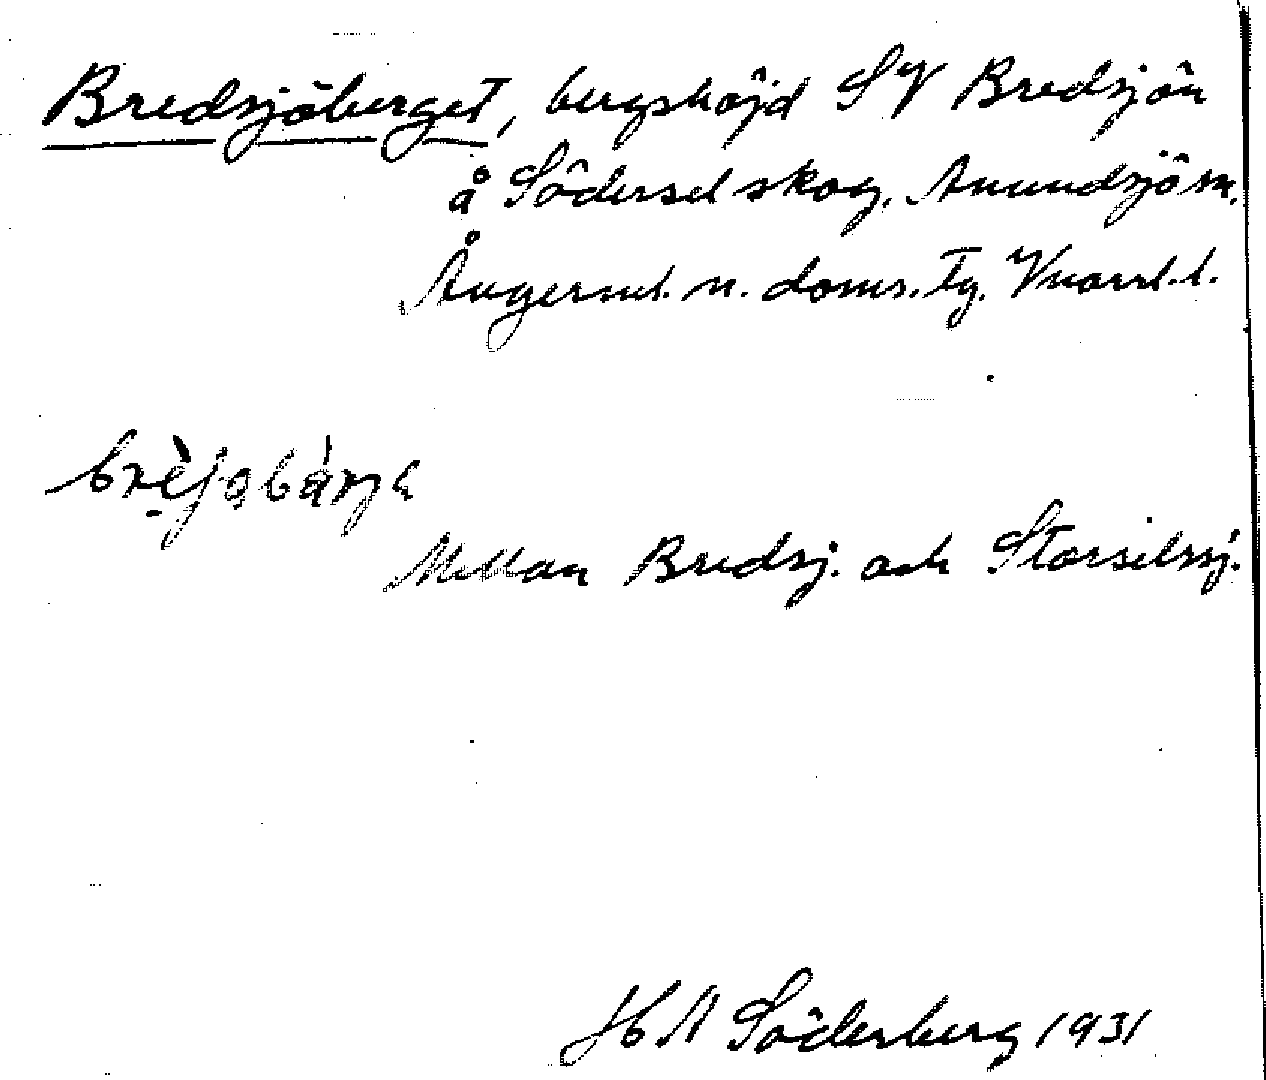 Bredsjöberget, bergshöjd SV Bredsjön
å Södersel skog, Anundsjö sn.
Ångerml. n. doms. Tg. Vnorrl. l.
Mellan Bredsj. och Storselssj.
H N Söderberg 1931